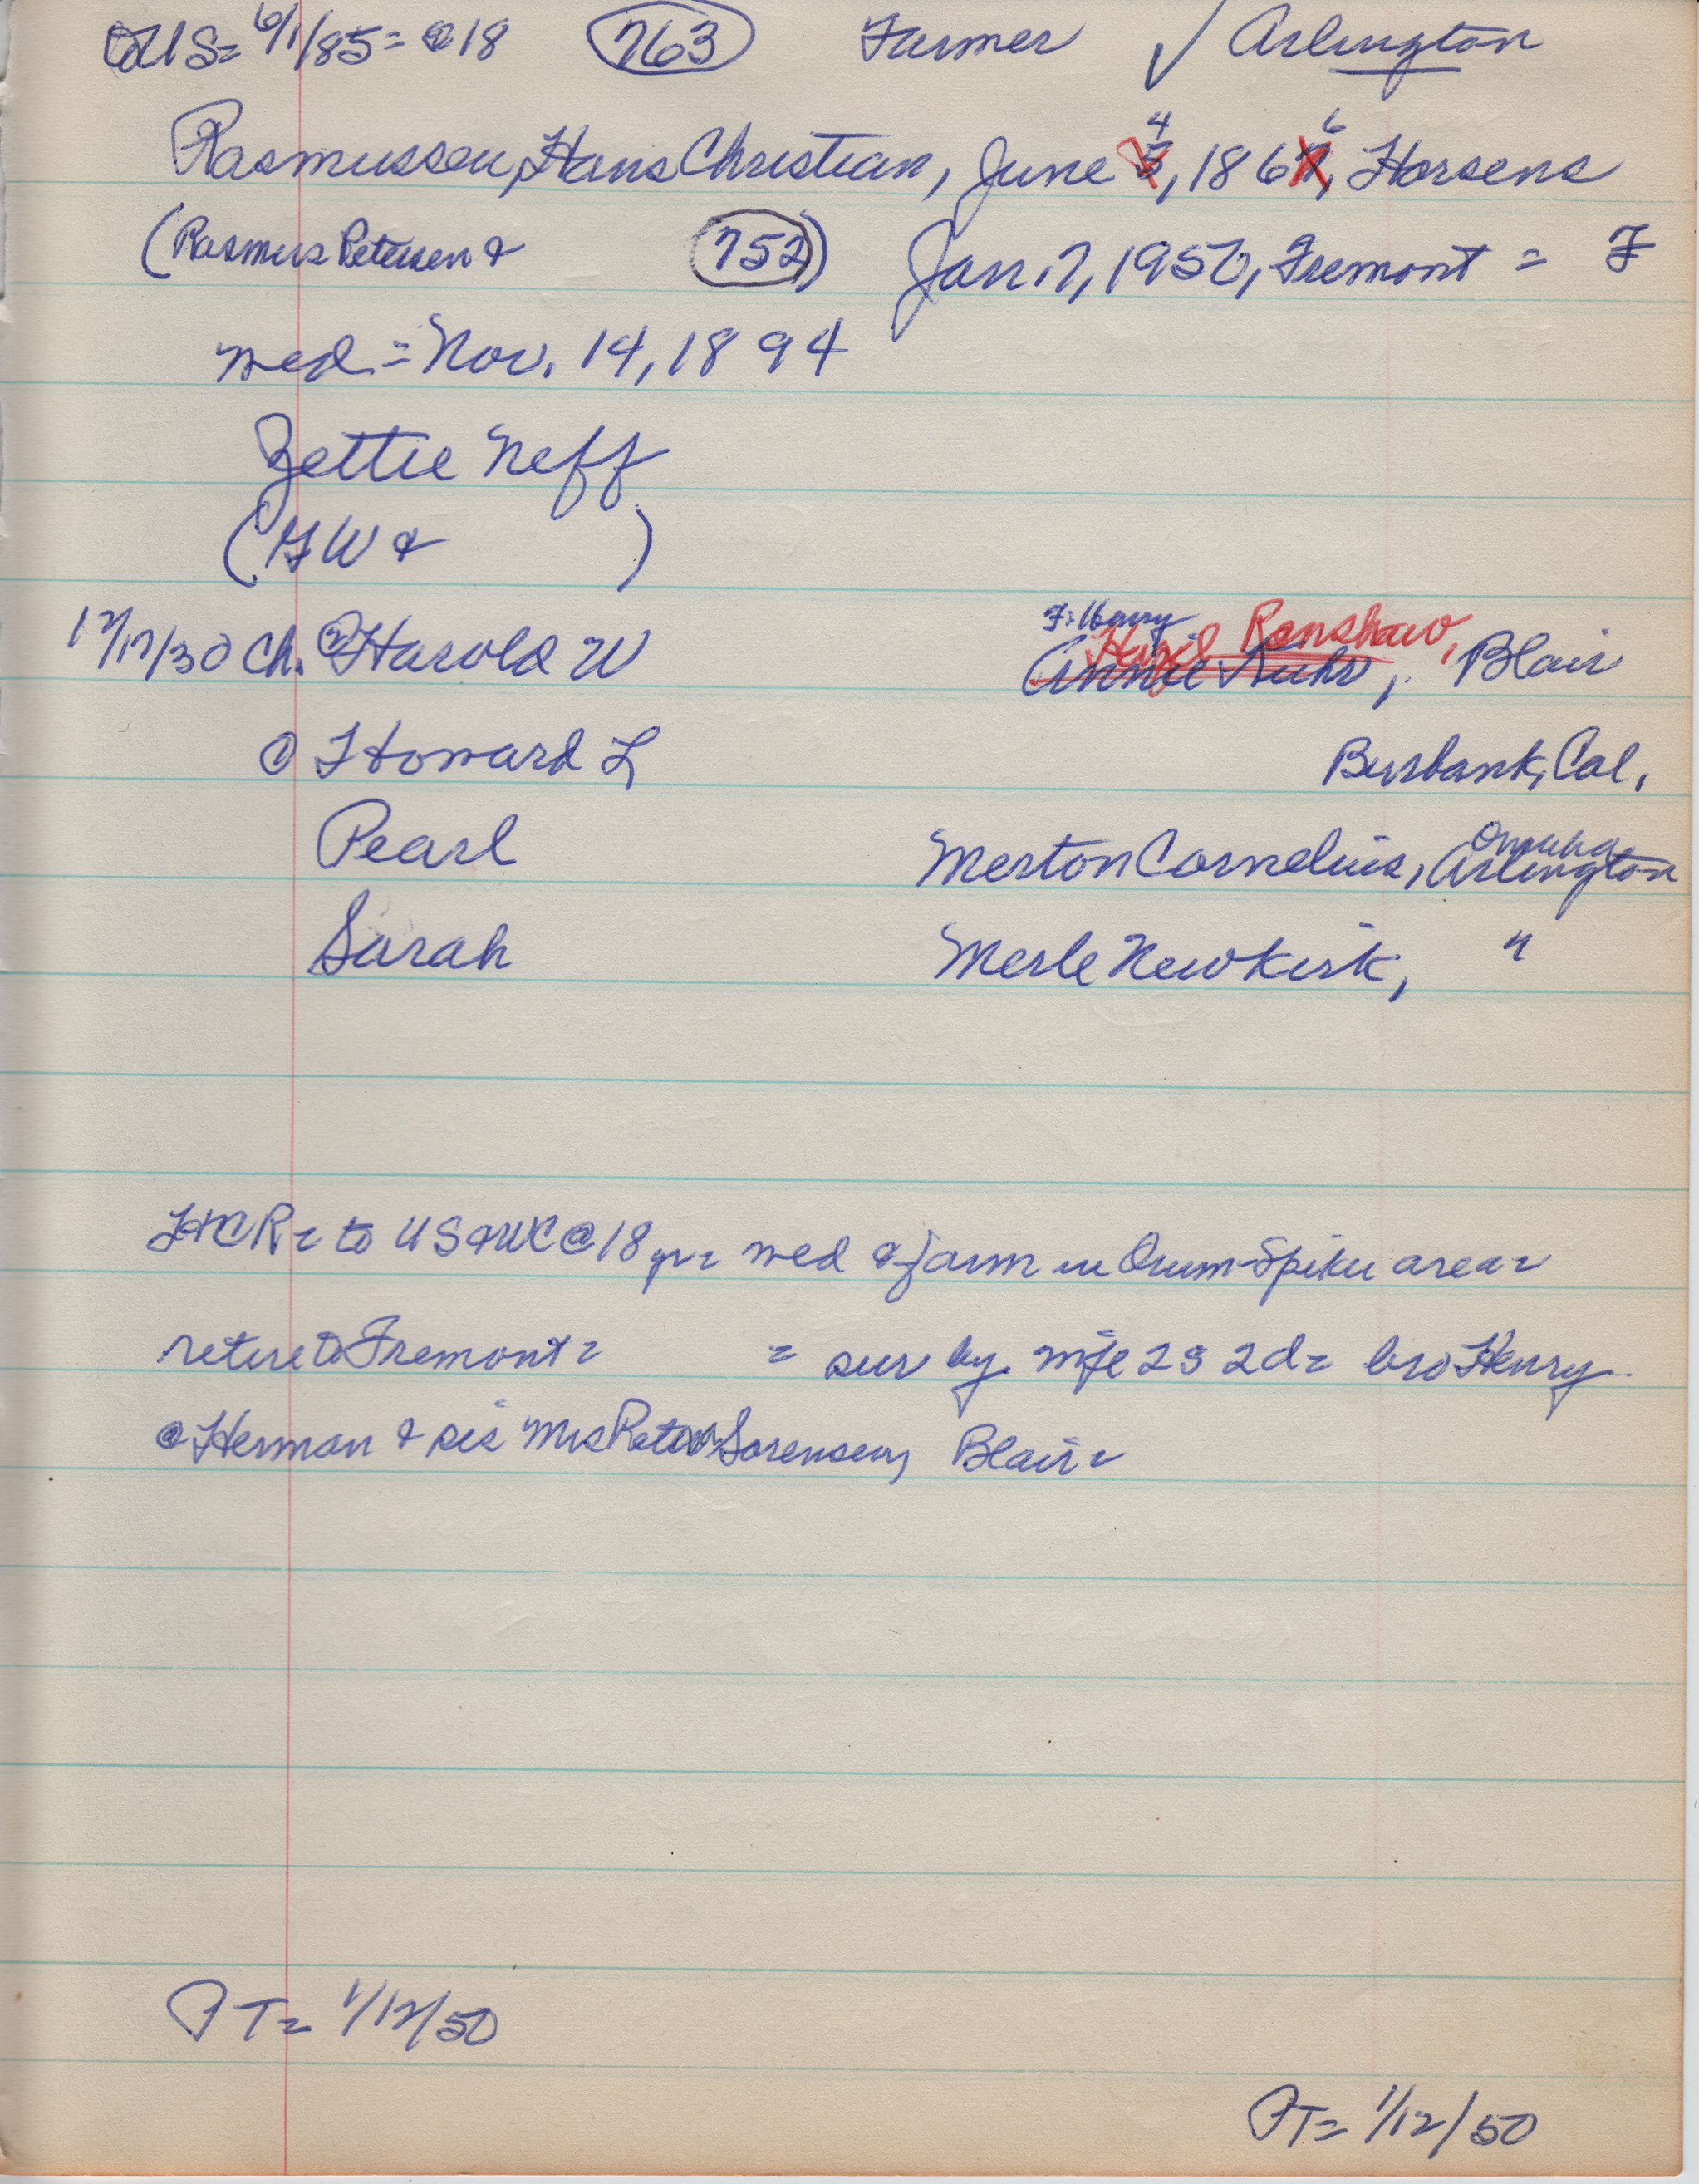 US= 6/1/85= @18 763 Farmer ✓ Arlington
4 6
Rasmussen, Hans Christian, June 3, 1867, Horsens
(Rasmus Petersen & 752) Jan. 7, 1950, Fremont = F
wed = Nov. 14, 1894
Zettie Neff
(GW & )
F. Henry
Hazel Ranshaw,
12/17/30 Ch. ② Harold W Annie Kuhr, Blair
① Howard L Burbank, Cal.
Omaha
Pearl Merton Cornelius, Arlington
Sarah Merle Newkirk, "
HCR= to US & WC @ 18 yr= wed & farm in Orum-Spiker area=
retire to Fremont= = sur by wife 2s 2d= bro Henry
@ Herman & sis Mrs Peter Sorensen, Blair=
PT= 1/12/50
PT= 1/12/50